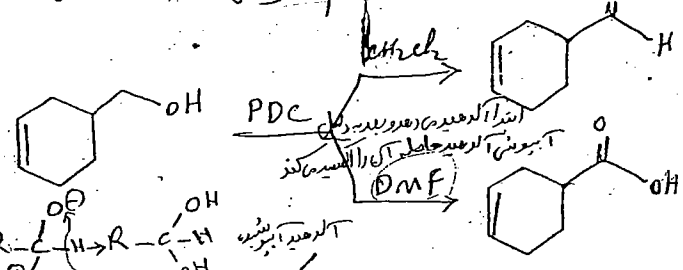 CH2Cl2
H
OH
PDC
ابتدا آلدهید می دهد و بعد به دلیل
آبپوشی آلدهید حاصل آن را اکسید می کند
DMF
O
OH
O⊖
R-C-H→R-C-H
OH
OH
آلدهید آبپوشیده